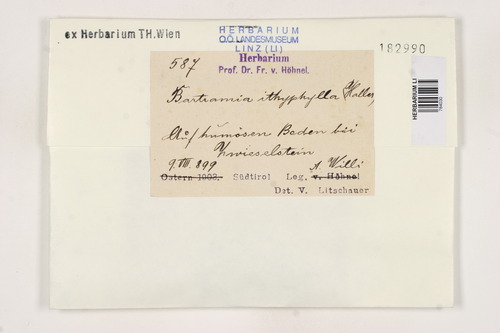 ex Herbarium TH.Wien
HERBARIUM
O.Ö. LANDESMUSEUM
LINZ (LI)
182990
HERBARIUM LI
587
Herbarium
Prof. Dr. Fr. v. Höhnel.
Bartramia ithyphylla (Haller)
Auf humösen Boden bei
Zwieselstein
9.VIII.899
A. Willi
Ostern 1903. Südtirol Leg. v. Höhnel
Det. V. Litschauer